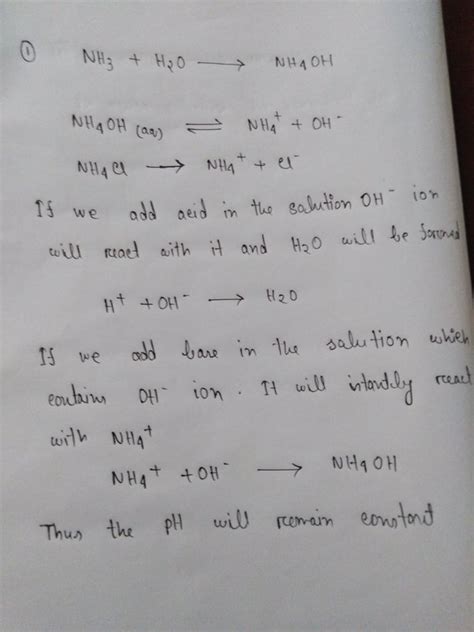 ① NH₃ + H₂O ⟶ NH₄OH
NH₄OH (aq) ⇌ NH₄⁺ + OH⁻
NH₄Cl ⟶ NH₄⁺ + Cl⁻
If we add acid in the salution OH⁻ ion
will react with it and H₂O will be formed
H⁺ + OH⁻ ⟶ H₂O
If we add base in the salution which
contains OH⁻ ion. It will intantly react
with NH₄⁺
NH₄⁺ + OH⁻ ⟶ NH₄OH
Thus the pH will remain constant